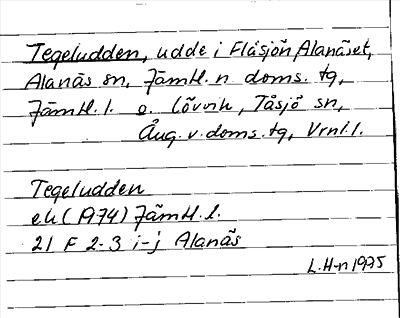 Tegeludden, udde i Flåsjön, Alanäset,
Alanäs sn, Jämtl. n doms. tg,
Jämtl. l. o. Lövvik, Tåsjö sn,
Ång. v. doms. tg, Vrnl. l.
Tegeludden
ek (1974) Jämtl. l.
21 F 2-3 i-j Alanäs
L. H-n 1975